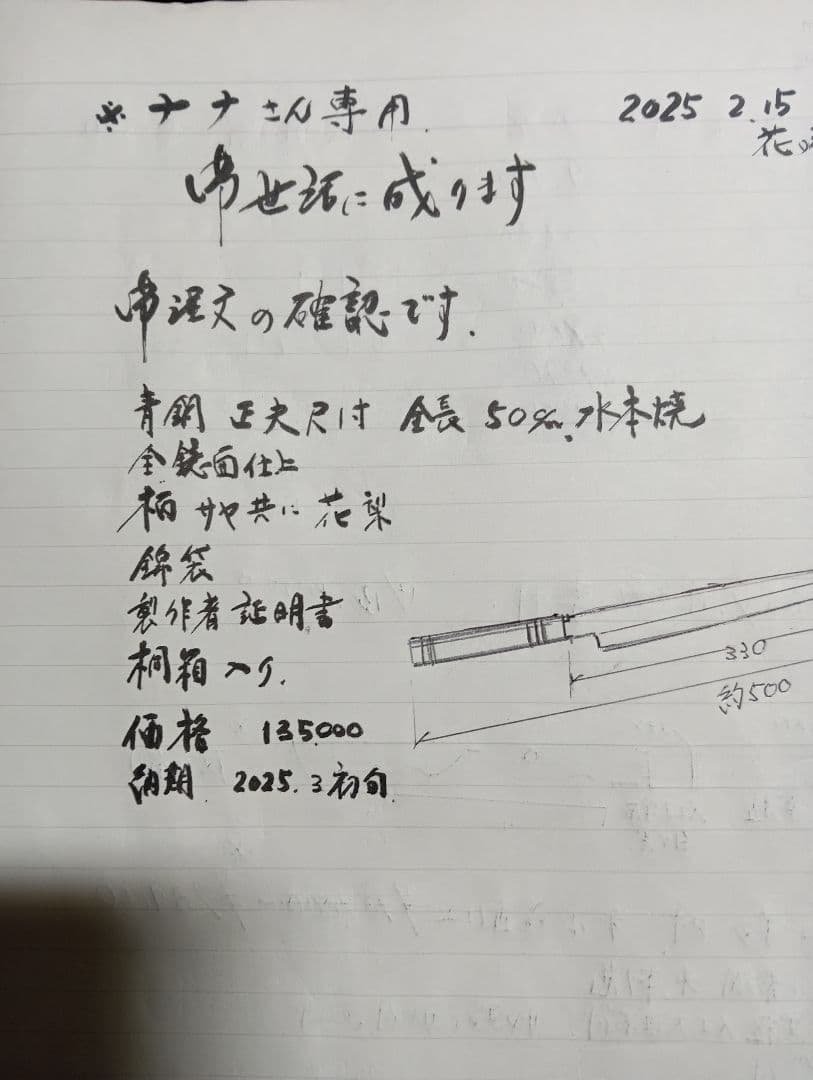 ※ナナさん専用.
2025 2.15
花
御世話に成ります
御注文の確認です.
青鋼 正夫尺寸 全長 50㎝. 水本焼
全鏡面仕上
柄 サヤ共に 花梨
錦袋
製作者証明書
桐箱入り.
価格 135000
納期 2025.3初旬
330
約500